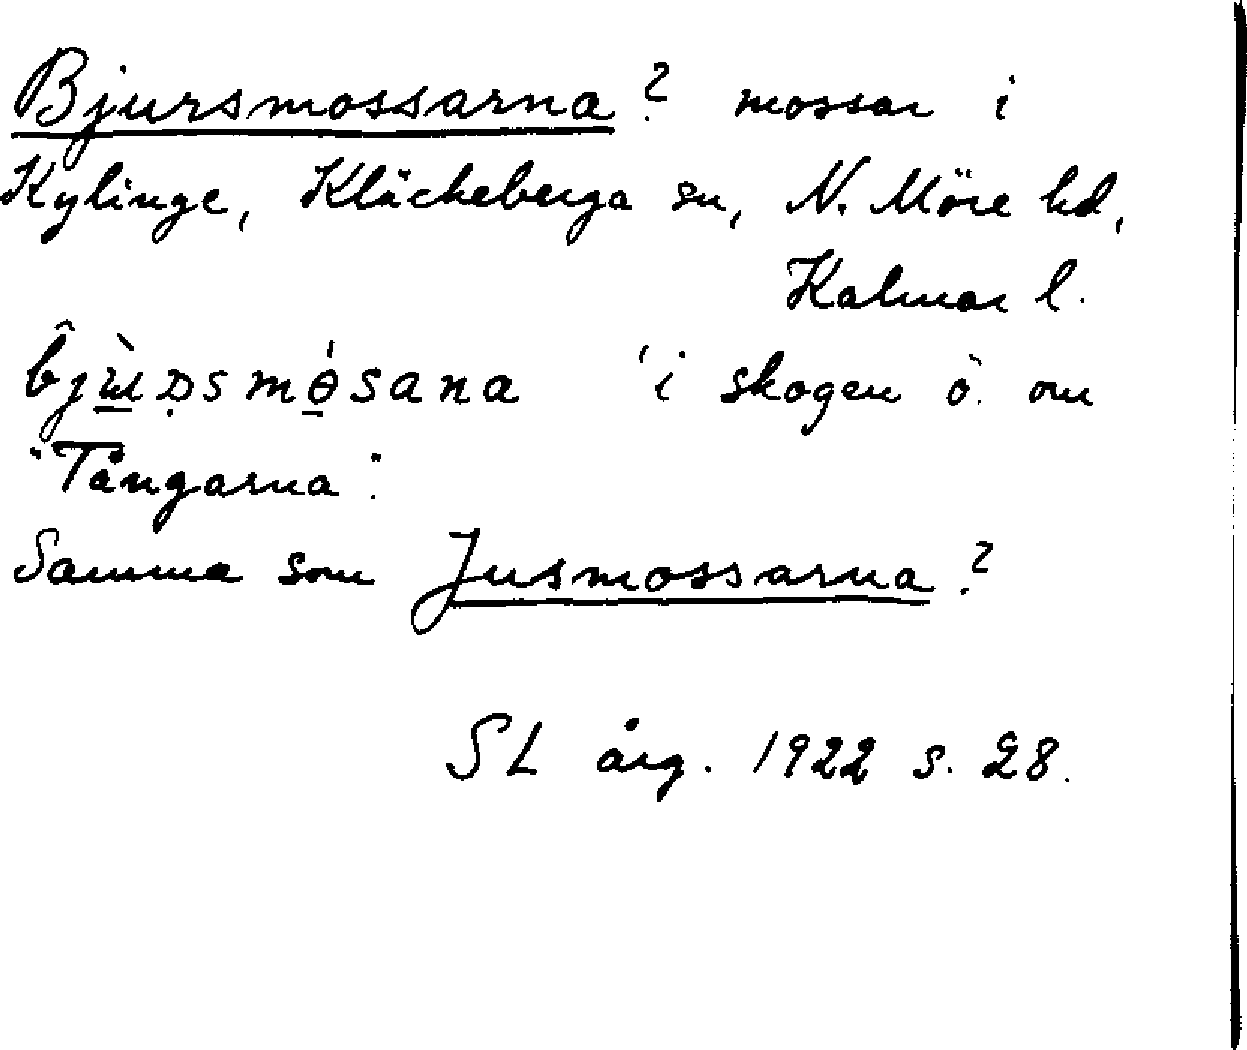 Bjursmossarna? mossar i
Kylinge, Kläckeberga sn, N. Möre hd,
Kalmar l.
'i skogen ö. om
"Tångarna".
Samma som Jusmossarna?
SL årg. 1922 s. 28.